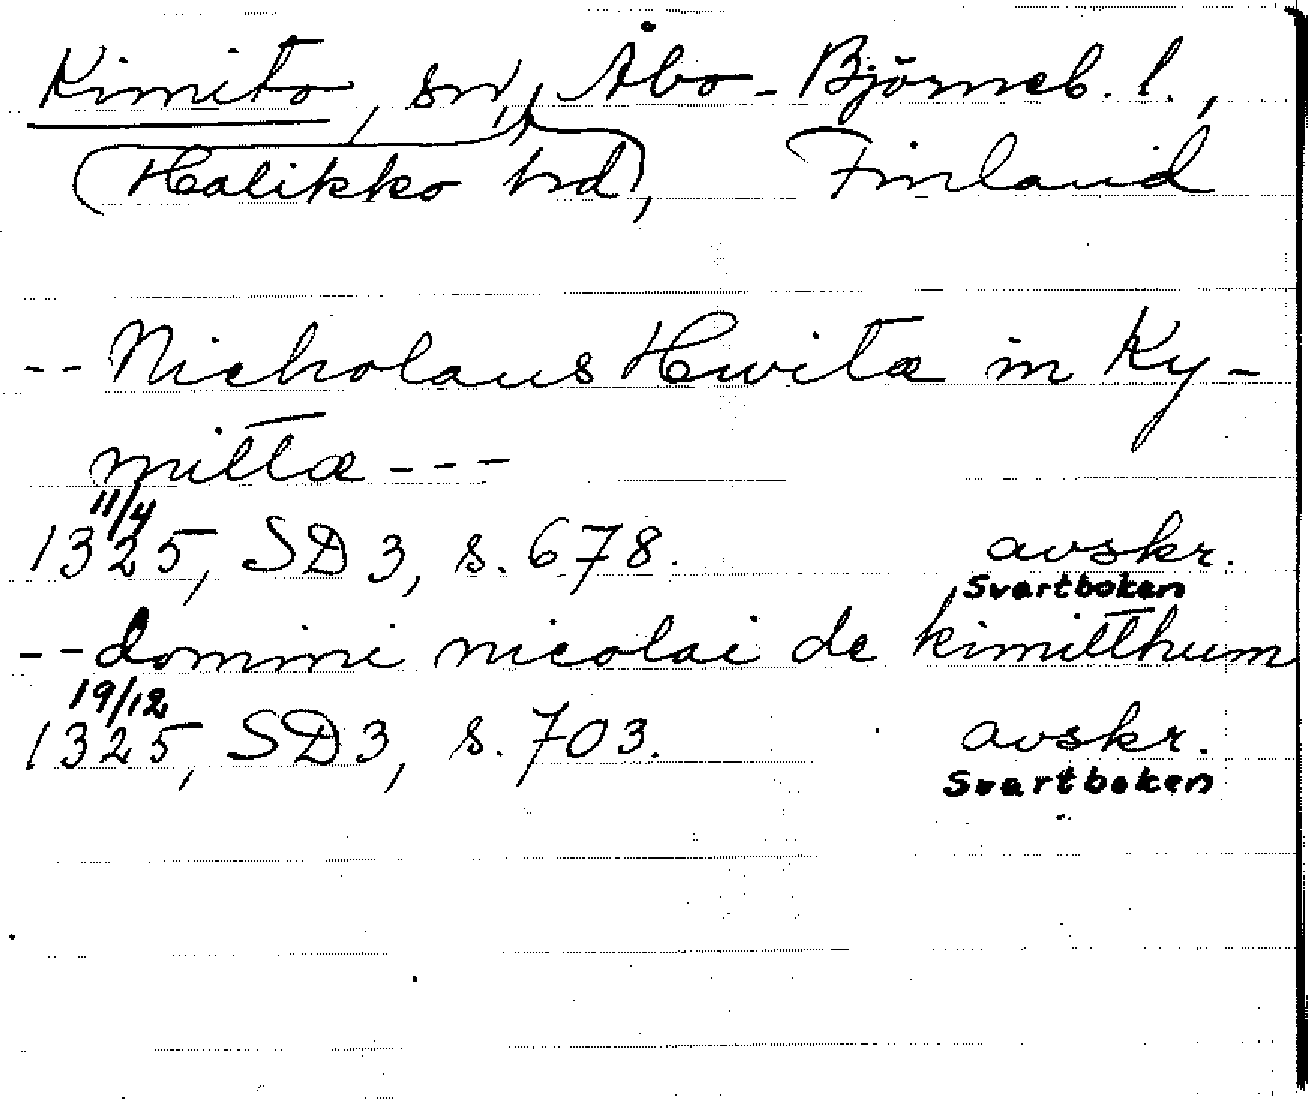 Kimito, sn, Åbo-Björneb. l.,
(Halikko hd), Finland
-- Nicholaus Hwitæ in Ky-
mittæ ---
11/4
1325, SD 3, s. 678. avskr.
Svartboken
-- domini nicolai de kimitthum
19/12
1325, SD 3, s. 703. avskr.
Svartboken